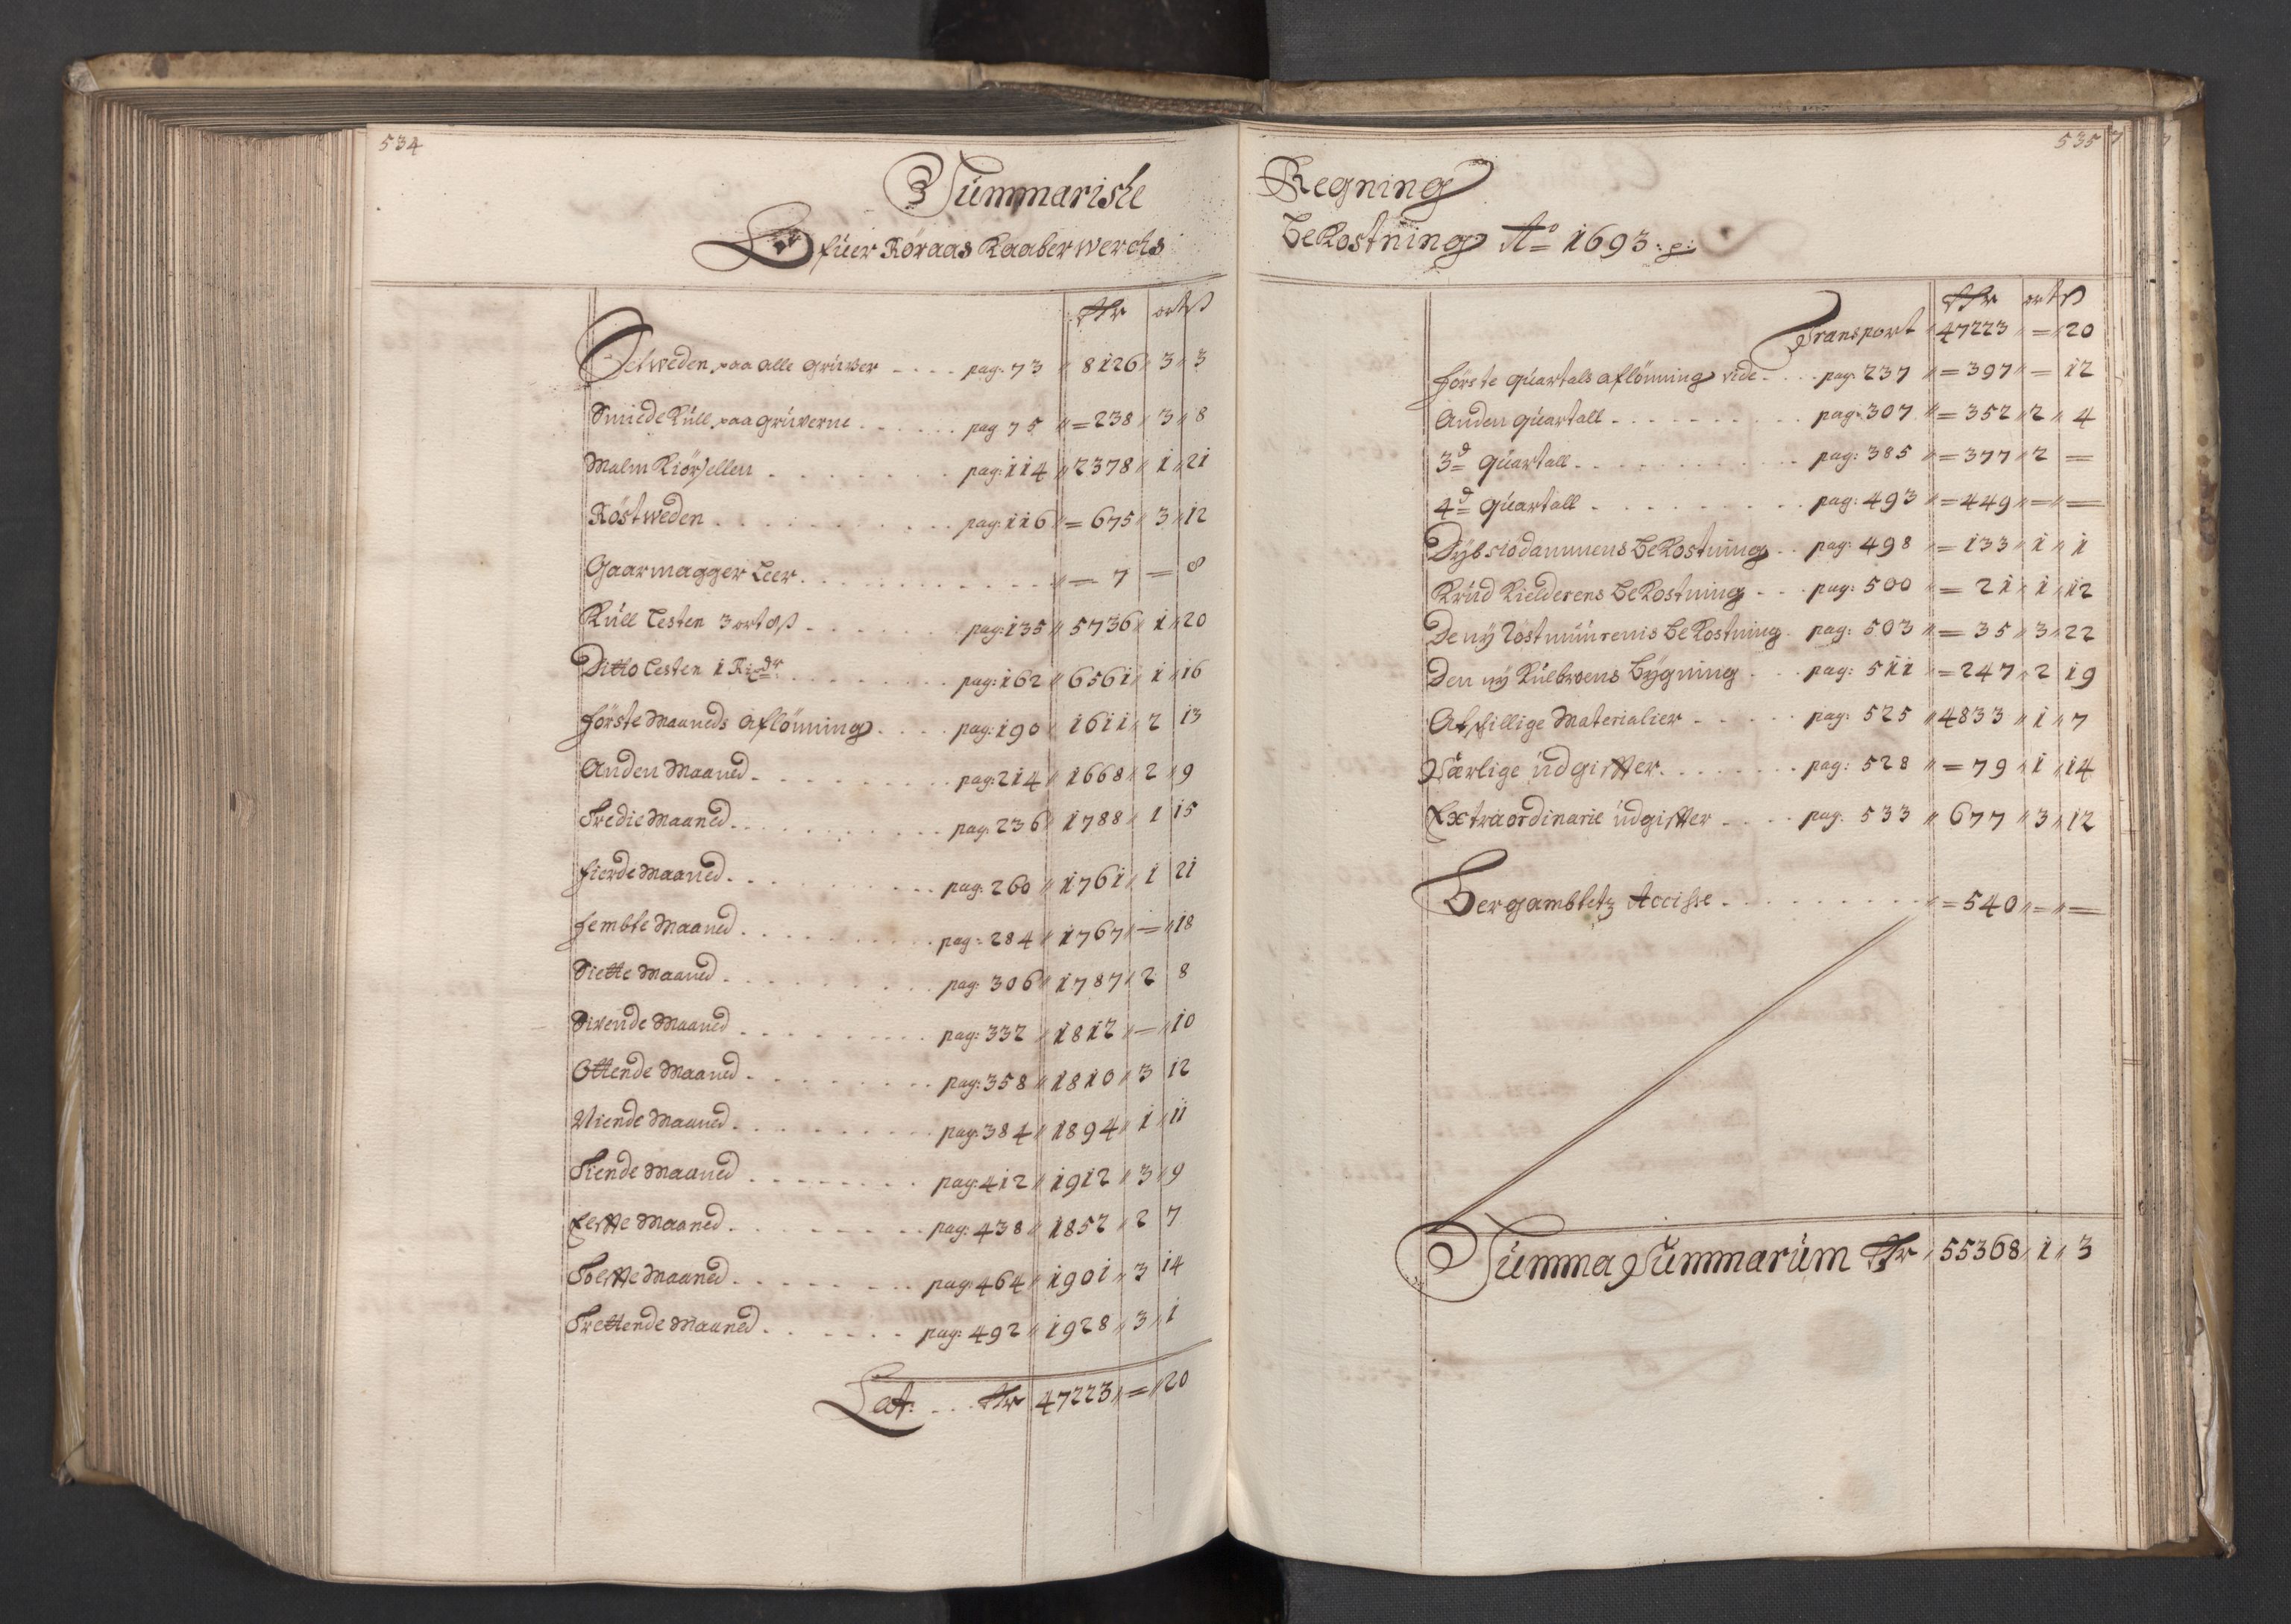 534
Summariske
Ofuer Röraas Kaaber wercks
Rdr ort ß
Setweden paa alle grüwer .... pag: 73 " 8126 " 3 " 3
Smiede Küll paa grüwerne ...... pag 75 " = 238 " 3 " 8
Malm Kiörsellen ....... pag: 114 " 2378 " 1 " 21
Röstweden ........... pag: 116 " = 675 " 3 " 12
Gaarmagger Leer ............ " = 7 = 8
Küll Lesten 3 ort 8 ß ...... pag: 135 " 5736 " 1 " 20
Ditto Lesten 1 Rixdr ........ pag: 162 " 6561 " 1 " 16
förste Maaneds aflönning .... pag: 190 " 1611 " 2 13
Anden Maaned ......... pag: 214 " 1668 " 2 " 9
Tredie Maaned ........... pag: 236 " 1788 " 1 15
fierde Maaned ........... pag: 260 " 1761 " 1 21
fembte Maaned .......... pag: 284 " 1767 " = " 18
Siette Maaned ......... pag: 306 " 1787 " 2 8
Siwende Maaned ......... pag: 332 " 1812 " = " 10
Ottende Maaned ......... pag: 358 " 1810 " 3 12
Niende Maaned ......... pag: 384 " 1894 " 1 " 11
Tiende Maaned ........ pag: 412 " 1912 " 3 " 9
Elffte Maaned ........ pag: 438 " 1852 " 2 7
Tolffte Maaned ........ pag: 464 " 1901 " 3 14
Trettende Maaned ...... pag: 492 " 1928 " 3 " 1
Lat: ... Rdr 47223 " = " 20
535
Regning
Bekostning Ao 1693:
Rdr ort ß
Transport " 47223 " = " 20
förste quartals aflönning vide .... pag: 237 " = 397 " = 12
Anden quartall .......... pag: 307 " = 352 " 2 " 4
3d quartall ........... pag: 385 " = 377 " 2 =
4d quartall ......... pag: 493 " = 449 " = " =
Dybsiödammens Bekostning .. pag: 498 " = 133 " 1 " 1
Krüd Kielderens Bekostning ... pag: 500 " = 21 " 1 " 12
De ny Röstmüürenis Bekostning . pag: 503 " = 35 " 3 " 22
Den ny Külbroens Bygning ... pag: 511 " = 247 " 2 19
Atskillige Materialier ..... pag: 525 " 4833 " 1 " 7
Jærlige üdgiffter ....... pag: 528 " = 79 " 1 " 14
Extraordinarie üdgiffter .... pag: 533 " 677 " 3 " 12
Bergambtetz Accisse ......... " = 540 " = " =
Summa Summarüm Rdr " 55368 " 1 " 3